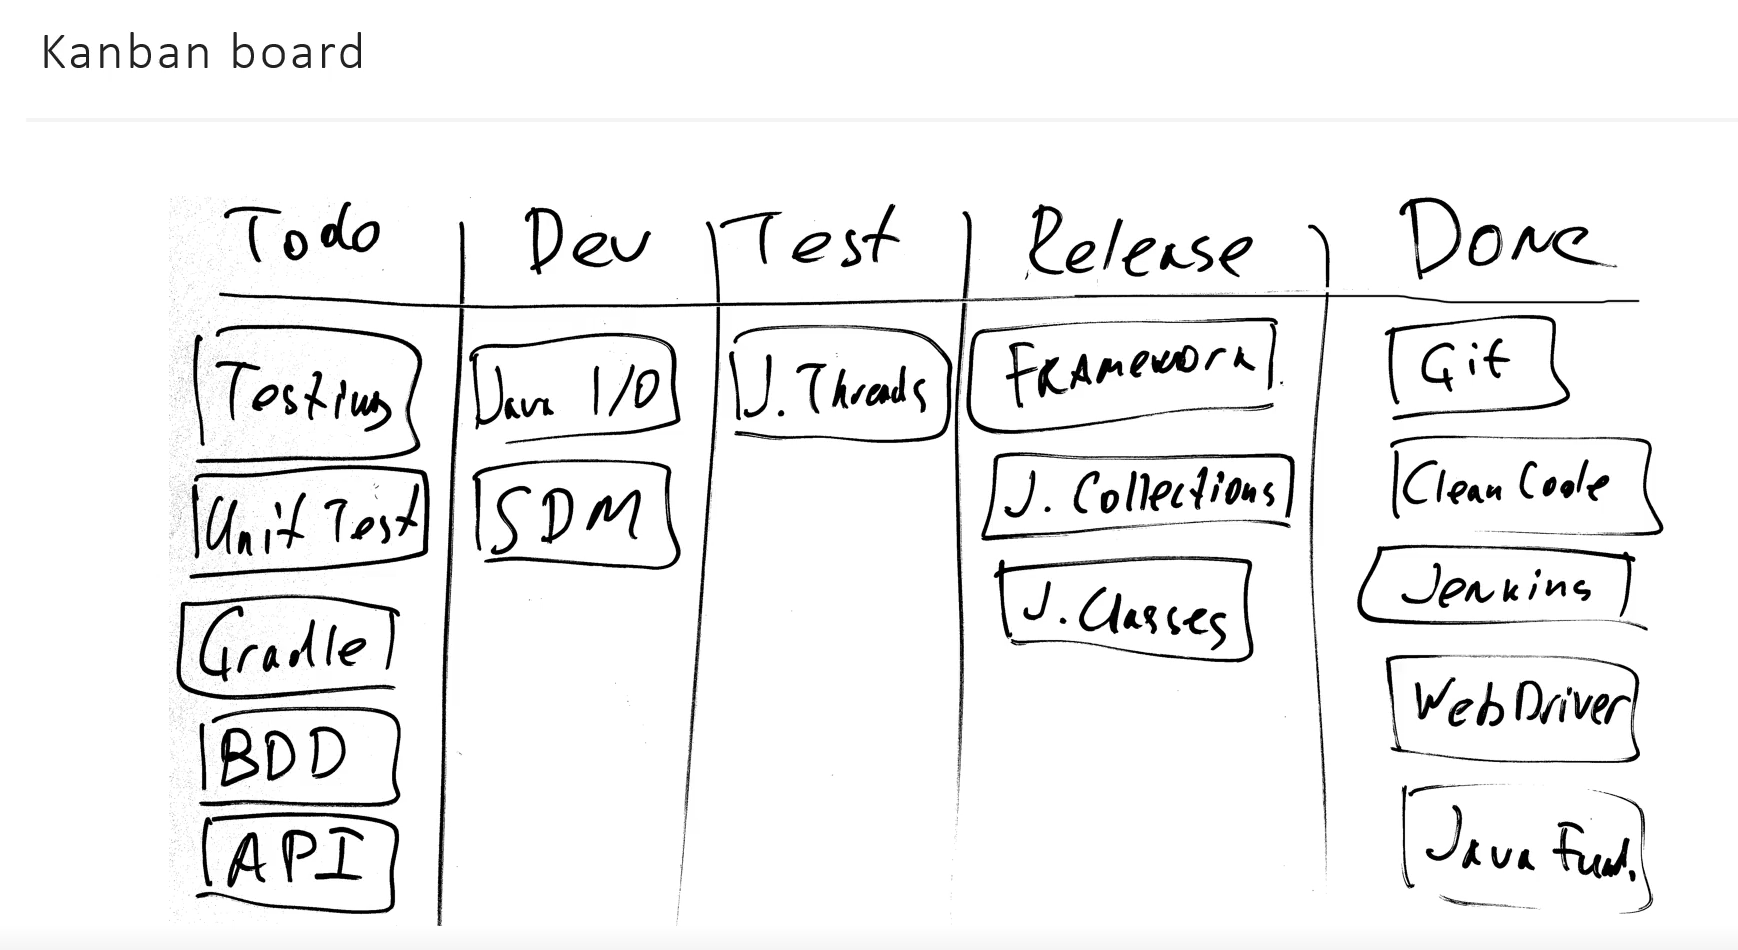 Kanban board
Todo Dev Test Release Done
Testing Java I/O J. Threads Framework Git
Unit Test SDM J. Collections Clean Code
Gradle J. Classes Jenkins
BDD WebDriver
API Java Fund.